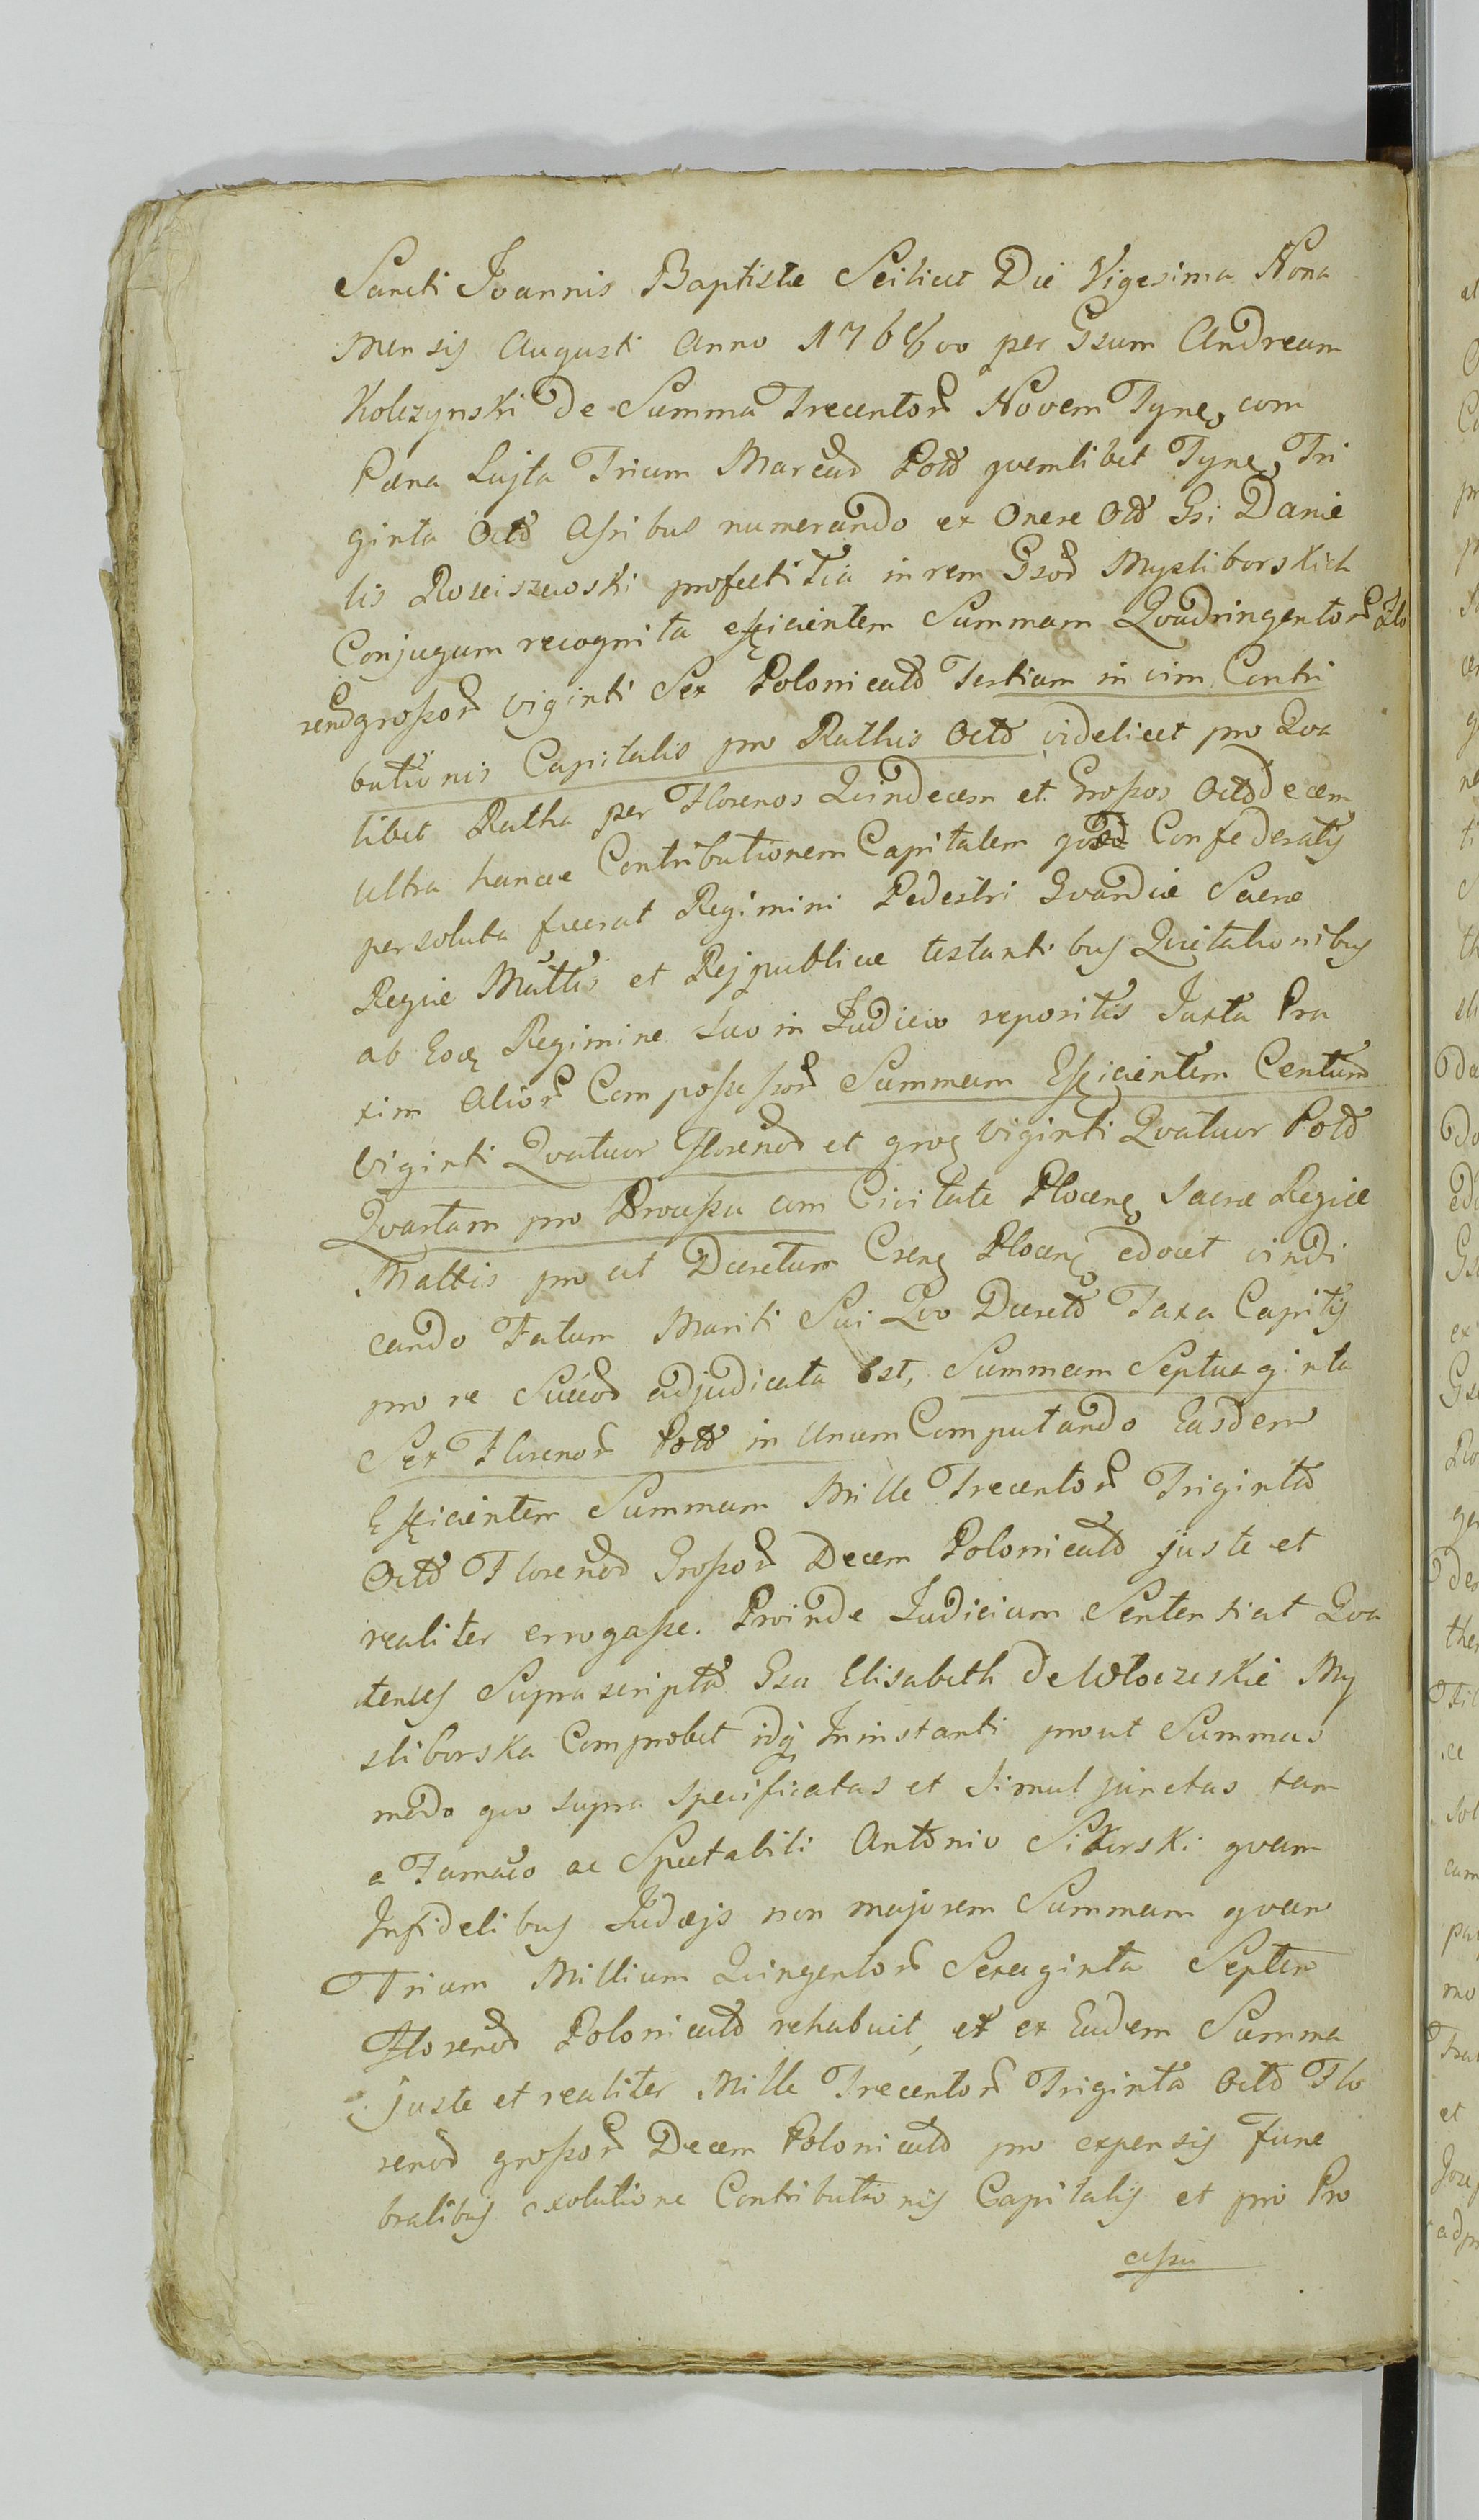 Sancti Joannis Baptistæ Scilicet Die Vigesima Nona
Mensis Augusti Anno per Gsum Andream
Kolczynski De Summa Trecentor Novem Tynf com
Pæna Lujta Trium Marcar Pol quemlibet Tynf Tri
ginta Octo Assibus numerando ex Onere Oło Gsi Danie
lis Rosciszewski profectitia in rem Gsor Mysliborskich
Conjugum recognita efficientem Summam Qvadringentor Flo
renor grossor viginti Sex Polonical Tertiam in vim Contri
butionis Capitalis pro Rathis Octo videlicet pro Qva
libet Ratha per Florenos Qvindecem et Grossos Octodecem
ultra hancce Contributionem Capitalem qvæ Confederatis
persoluta fuerat Regimini Pedestri Gvardiæ Sacræ
Regiæ Mattis et Rejpublicæ testantibus Quietationibus
ab Eoq Regimine suo in Judicio repositis Juxta Pra
xim Alior Compossessor Summam Efficientem Centum
Viginti Qvatuor Florenor et gros Viginti Qvatuor Pol
Qvartam pro Processu cum Civitate Plocens Sacræ Regiæ
Mattis pro ut Decretum Csens Plocens edocet vindi
cando Fatum Mariti Sui Qvo Decreto Taxa Capitis
pro re Succor adjudicata est, Summam Septuaginta
Sex Florenor Pol in Unum Computando Easdem
Efficientem Summam Mille Trecentor Triginta
Octo Florenor Grossor Decem Polonical juste et
realiter errogasse. Proinde Judicium Sententiat Qva
tenus Suprascripta Gsa Elisabeth de Wloczeskie My
sliborska Comprobet idq Ininstanti prout Summas
modo qvo supra specificatas et simul junctas tam
a Famato ac Spectabili Antonio Sikorski qvam
Infidelibus Judæjs non majorem Summam qvam
Trium Millium Qvingentor Sexaginta Septem
Florenor Polonical rehabuit, et ex Eadem Summa
juste et realiter Mille Trecentor Triginta Octo Flo
renor grossor Decem Polonical pro expensis fune
bralibus exolutione Contributionis Capitalis et pro Pro
cessu